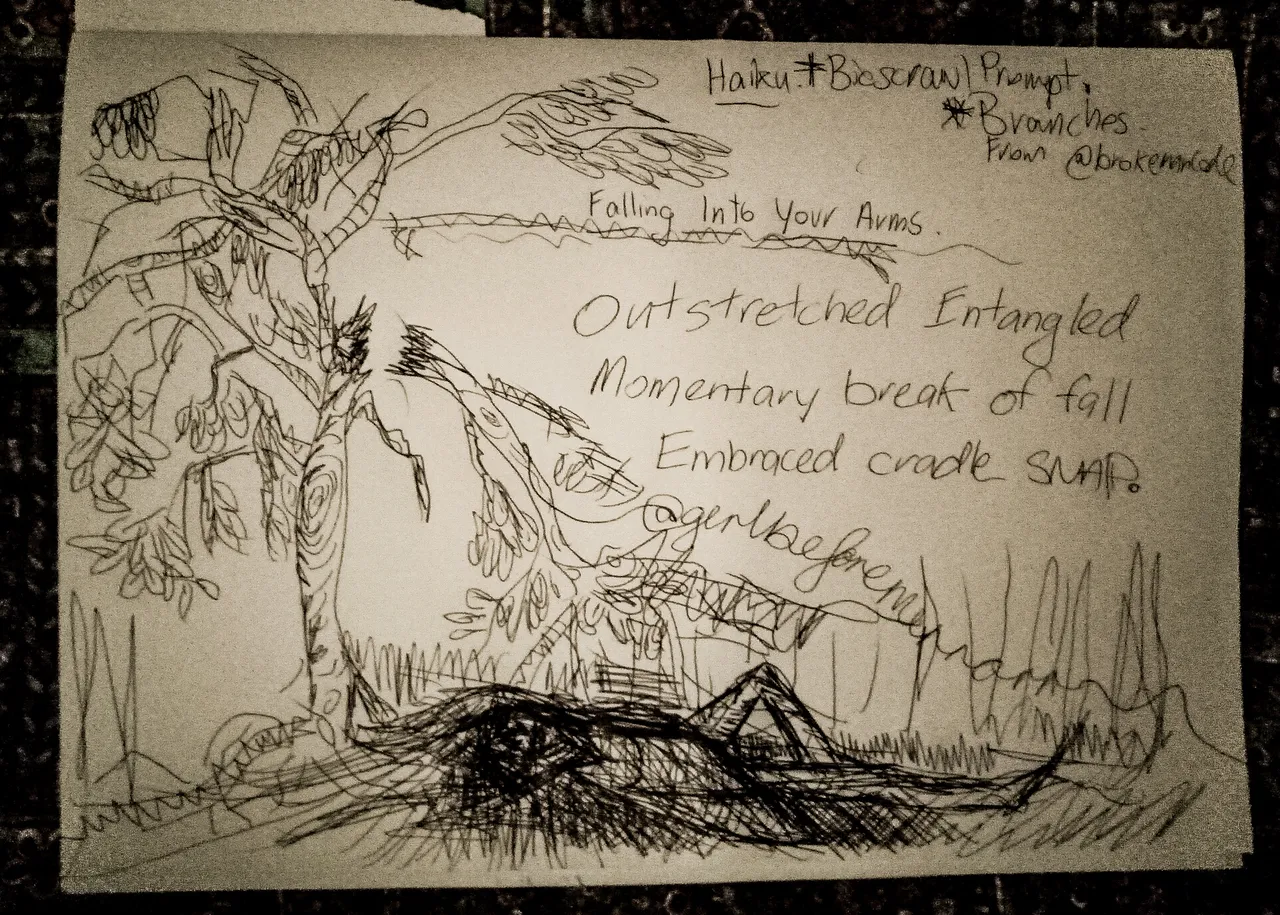 Haiku. #Bioscrawl Prompt.
*Branches.
From
Falling Into Your Arms.
Outstretched Entangled
Momentary break of fall
Embraced cradle SNAP.